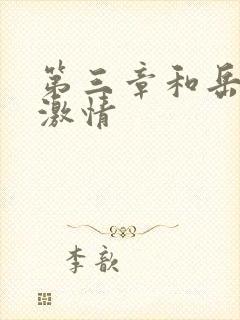 第三章和岳
激情
李歆